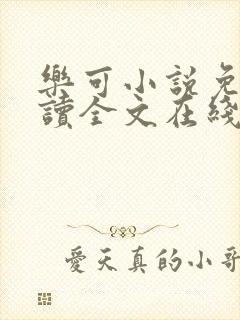 樂可小說免
讀全文在綫
愛天真的小哥